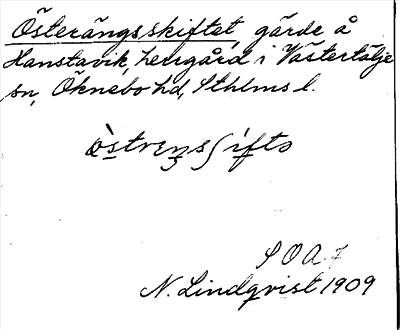 Österängsskiftet, gärde å
Hanstavik, herrgård i Västertälje
sn, Öknebo hd, Sthlms l.
òstrensʃifto
S O A 7
N. Lindqvist 1909